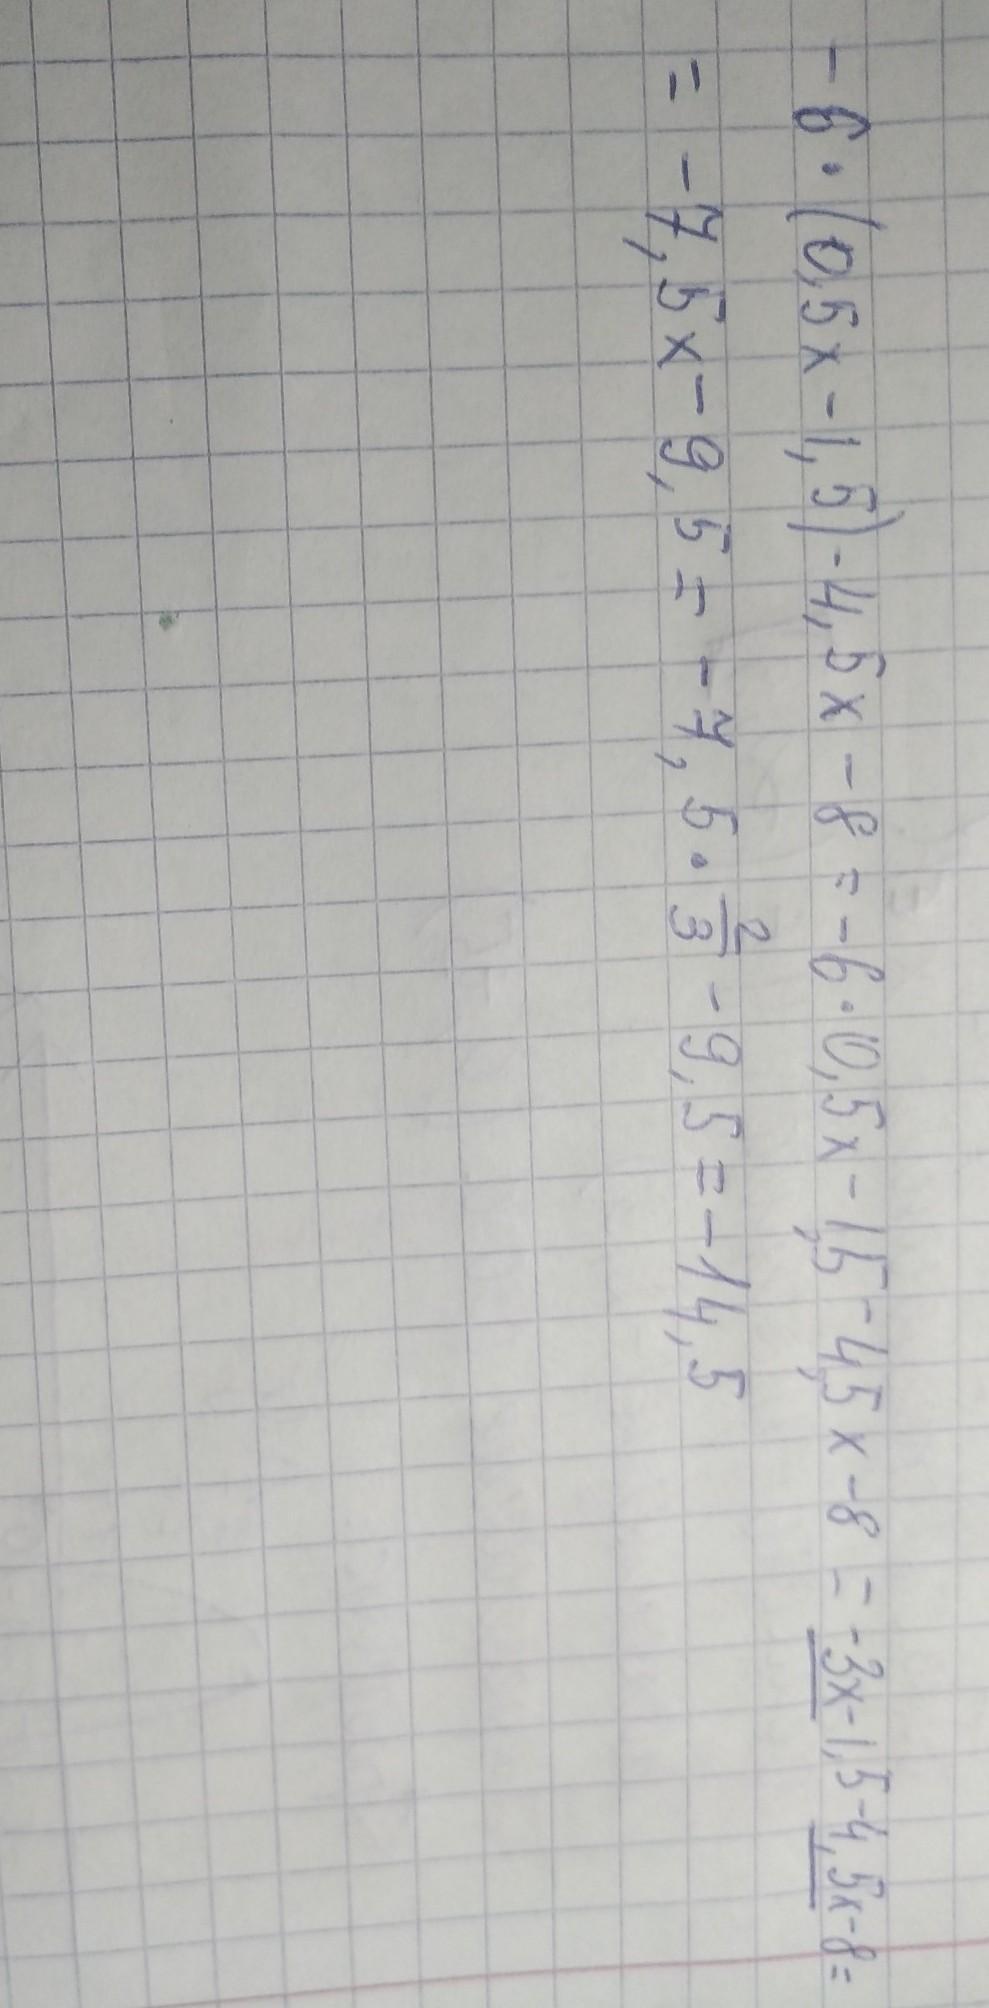 -6·(0,5x-1,5)-4,5x-8=-6·0,5x-1,5-4,5x-8=-3x-1,5-4,5x-8=
=-7,5x-9,5=-7,5·2/3-9,5=-14,5